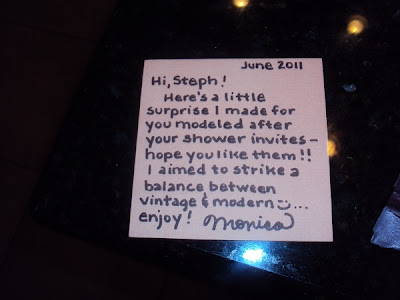 June 2011
Hi, Steph!
Here's a little
surprise I made for
you modeled after
your shower invites -
hope you like them!!
I aimed to strike a
balance between
vintage & modern☺...
enjoy! Monica